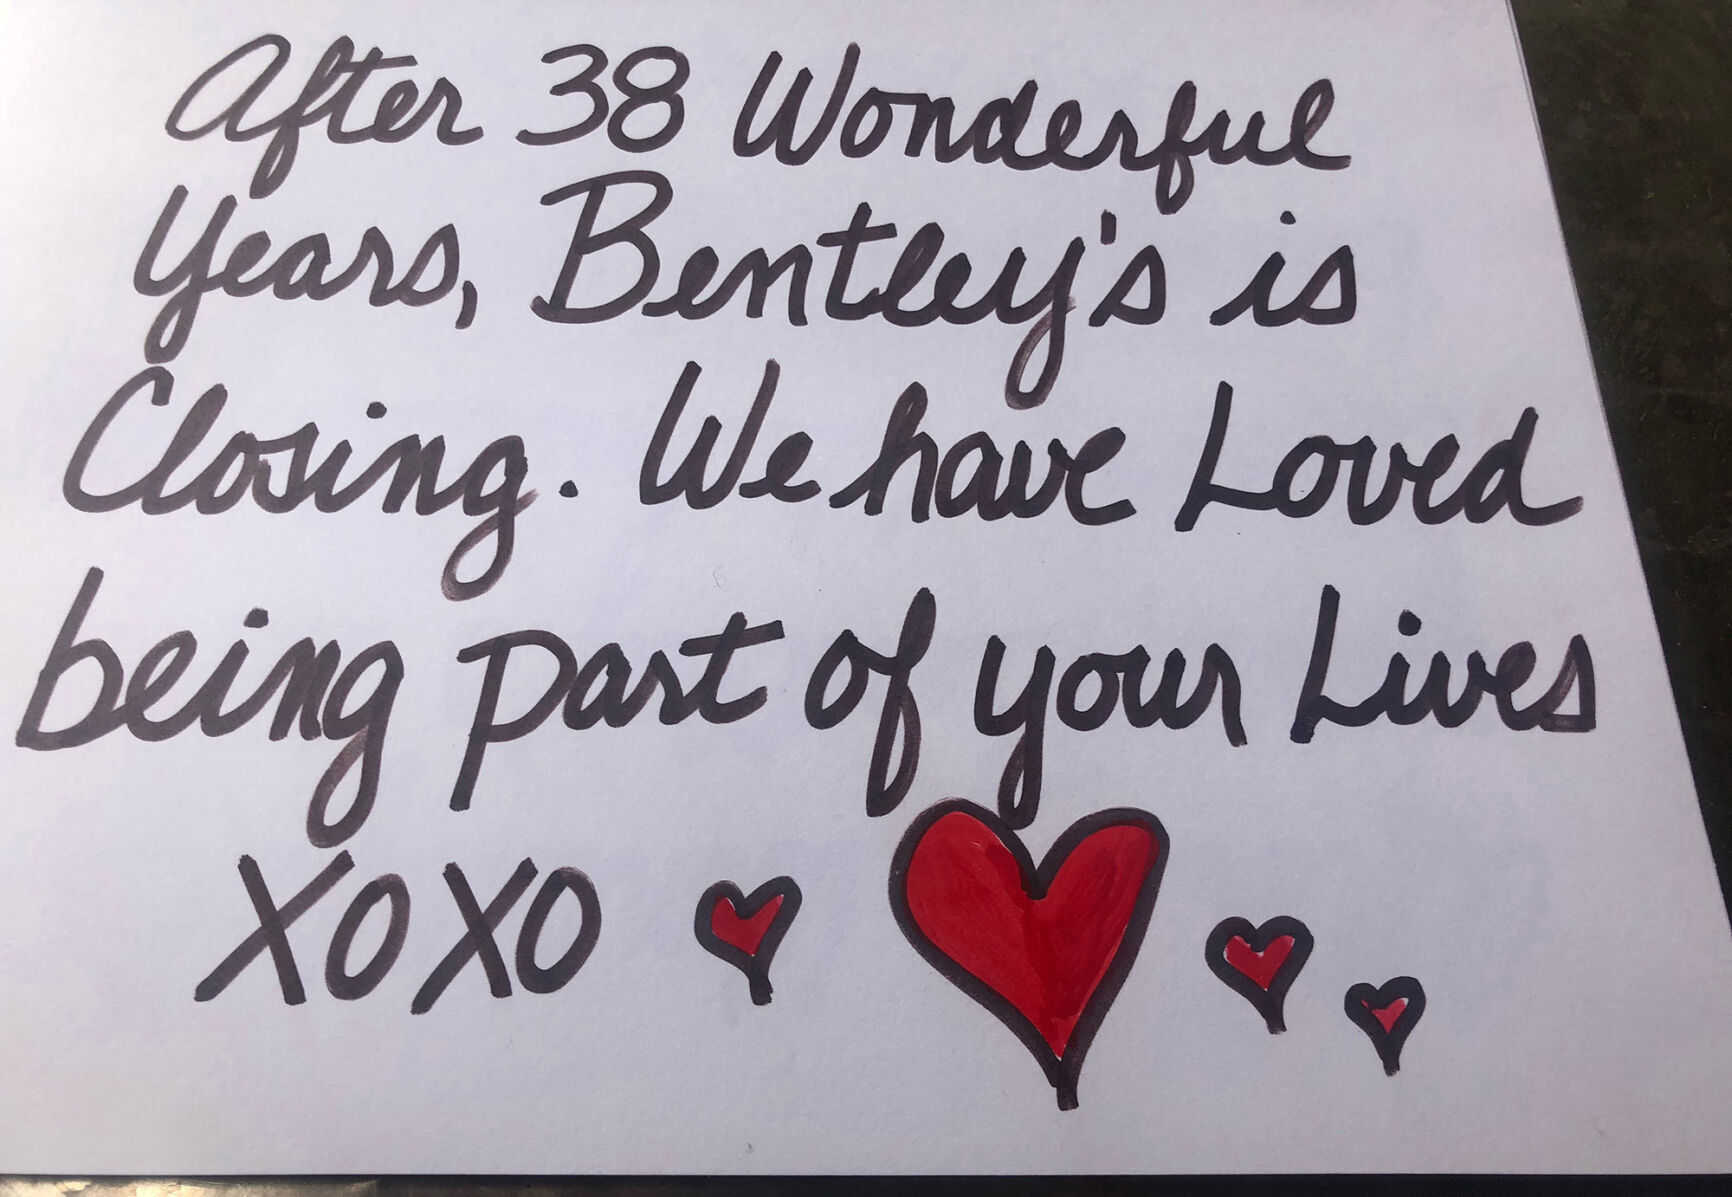 After 38 Wonderful
Years, Bentley's is
Closing. We have Loved
being part of your Lives
XOXO